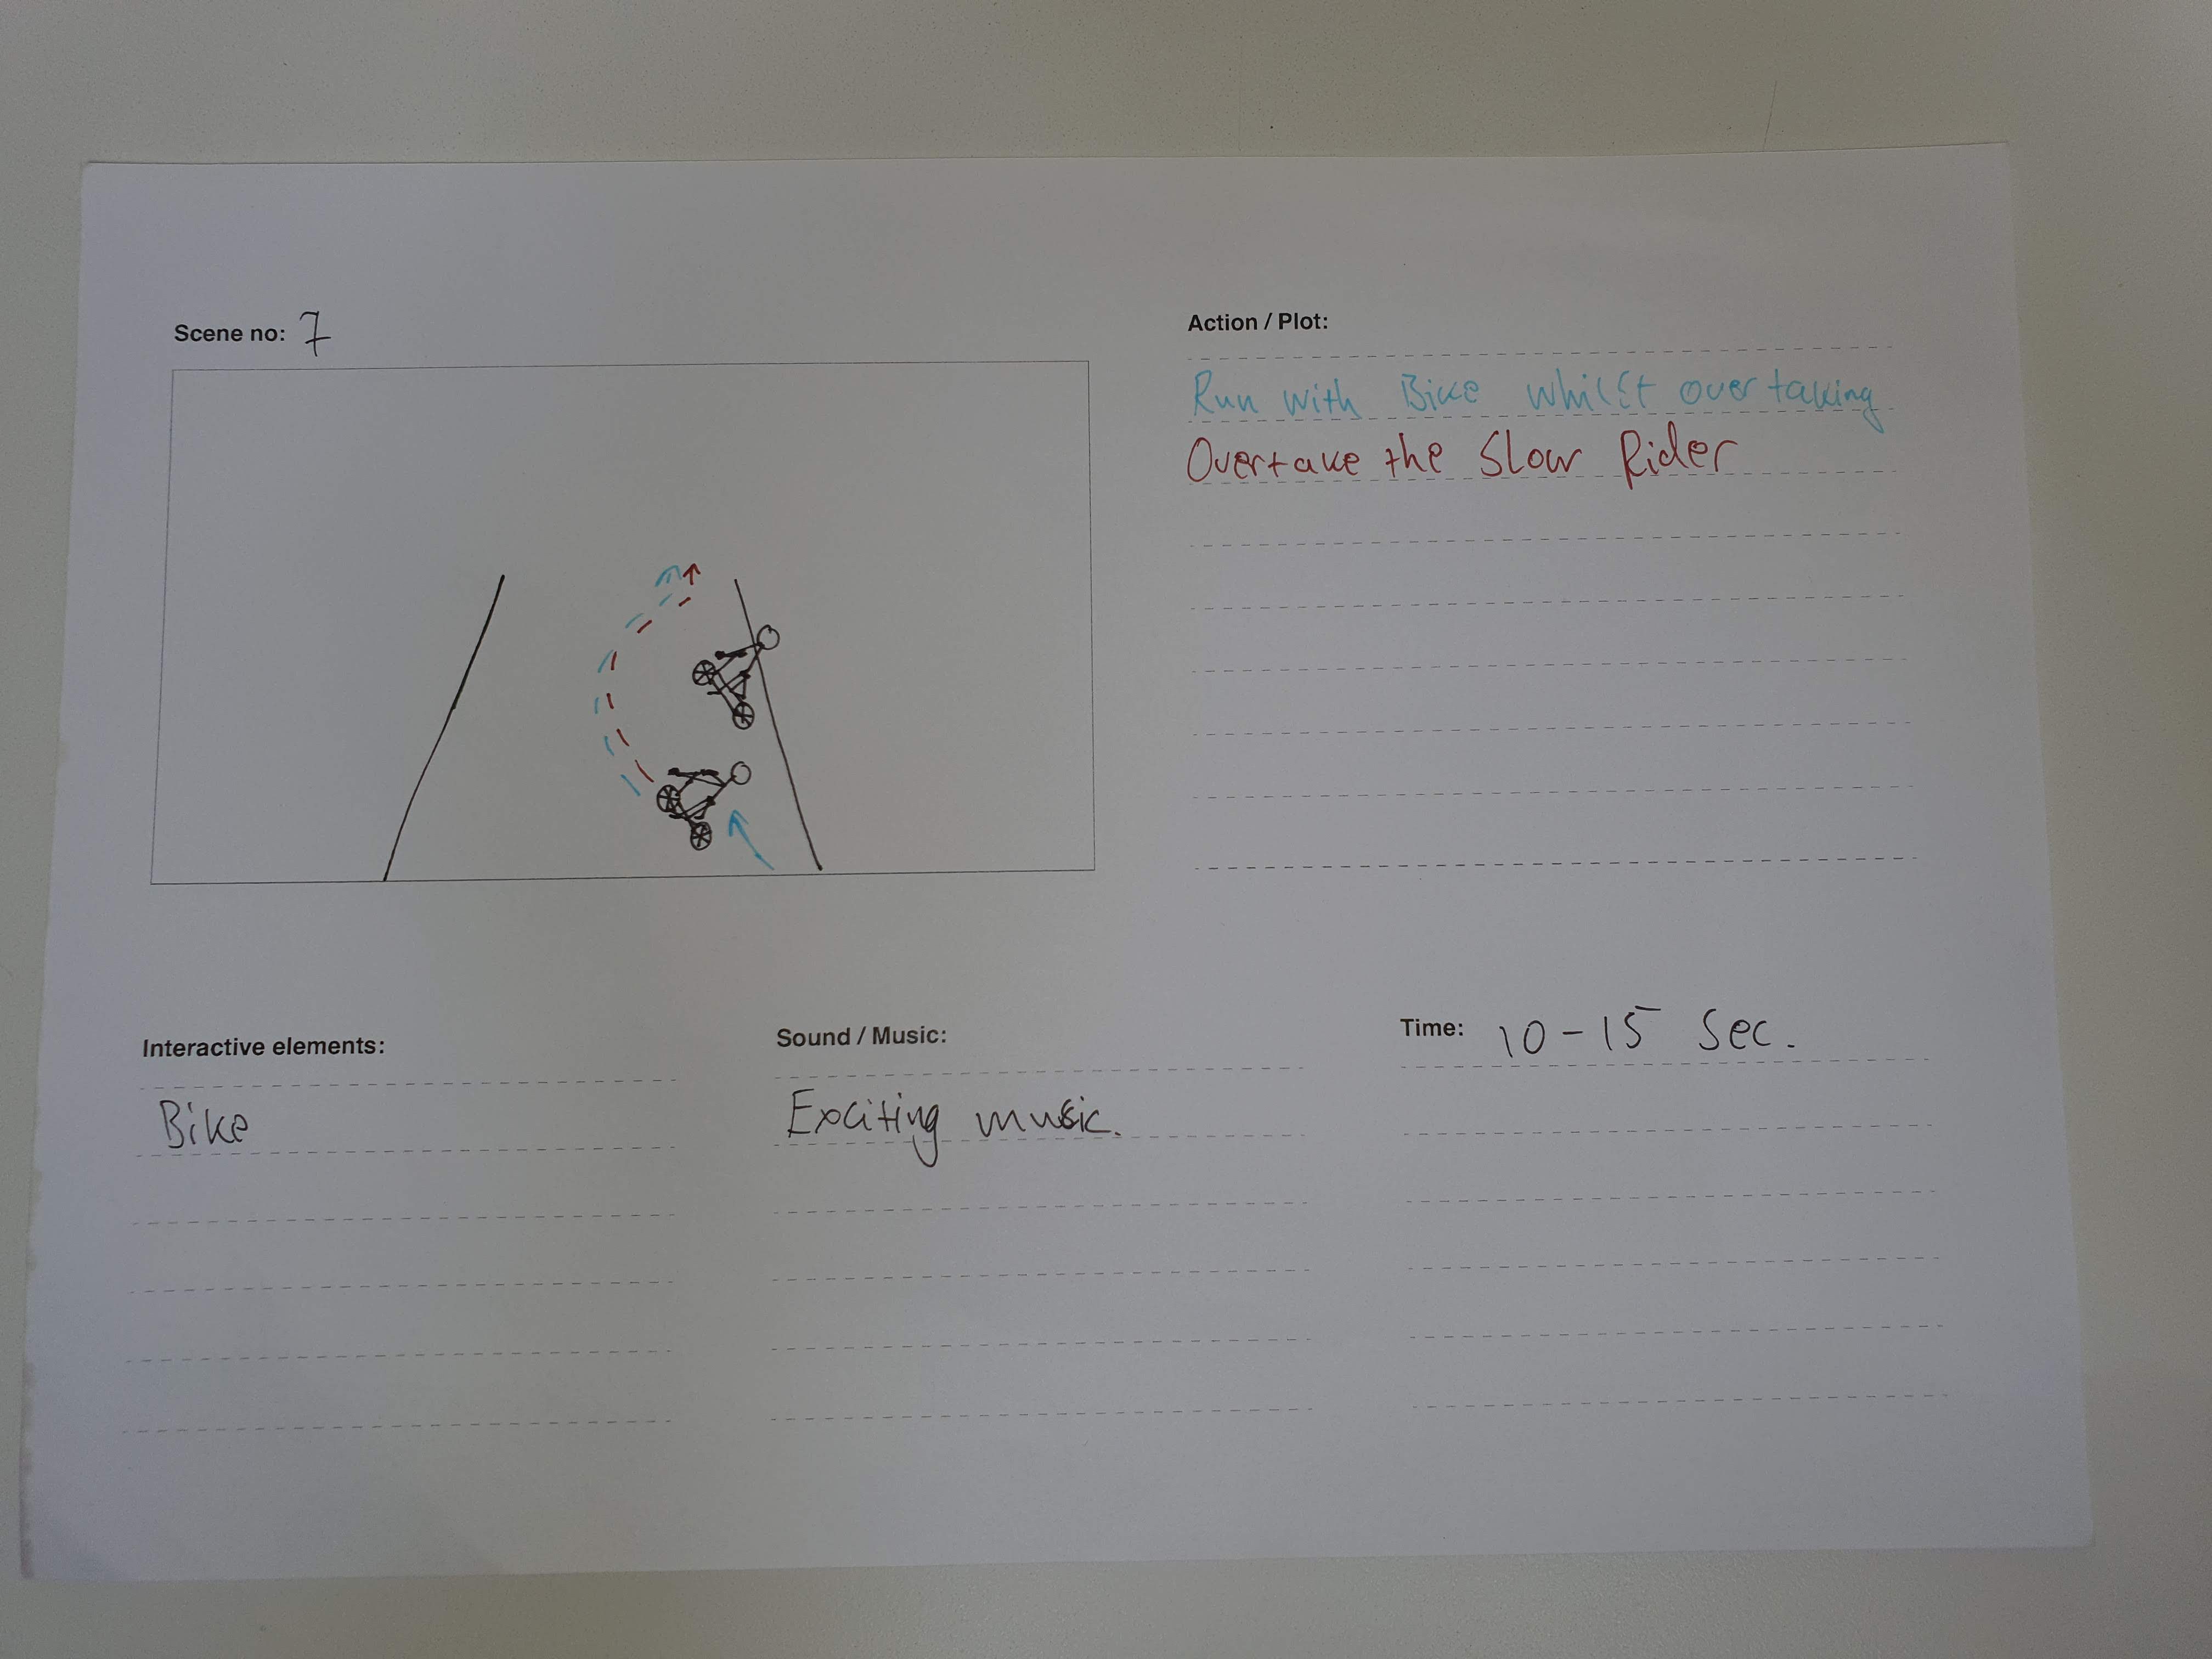 Scene no: 7
Action / Plot:
Run with Bike whilst overtaking
Overtake the Slow Rider
Interactive elements:
Bike
Sound / Music:
Exciting music.
Time: 10-15 Sec.